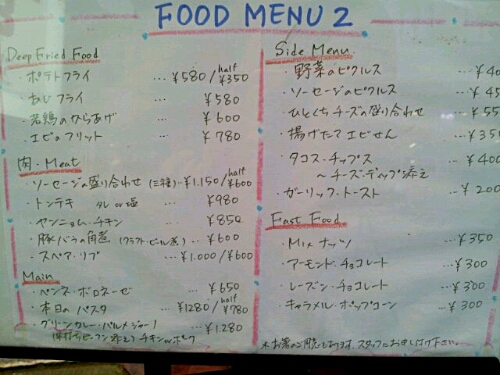 FOOD MENU 2
Deep Fried Food
ポテトフライ … ¥580 / half ¥350
あじフライ … ¥580
・若鶏のからあげ … ¥600
・エビのフリット … ¥780
肉・Meat
・ソーセージの盛り合わせ (三種) … ¥1,150 / half ¥600
・トンテキ タレ or 塩 … ¥980
・ヤンニョムチキン … ¥850
・豚バラの角煮 (クラフトビール煮) … ¥600
・スペアリブ … ¥1,000 / ¥600
Main
・ペンネ・ボロネーゼ … ¥650
・本日のパスタ … ¥1280 / half ¥780
・グリーンカレー … ¥1,280
チキン or ポーク
Side Menu
・野菜のピクルス
・ソーセージのピクルス
・ひとくちチーズの盛り合わせ
・揚げたてエビせん … ¥35
・タコス・チップス … ¥400
〜チーズディップ添え
・ガーリック・トースト … ¥200
Fast Food
・Mix ナッツ … ¥350
・アーモンド・チョコレート … ¥300
・レーズン・チョコレート … ¥300
・キャラメル・ポップコーン … ¥300
スタッフにお申し付け下さい。